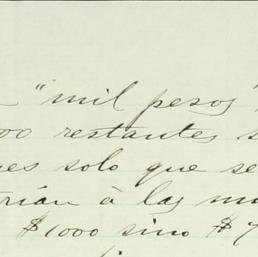 "mil pesos"
00 restantes s
es solo que se
rian á las m
$1000 sino $